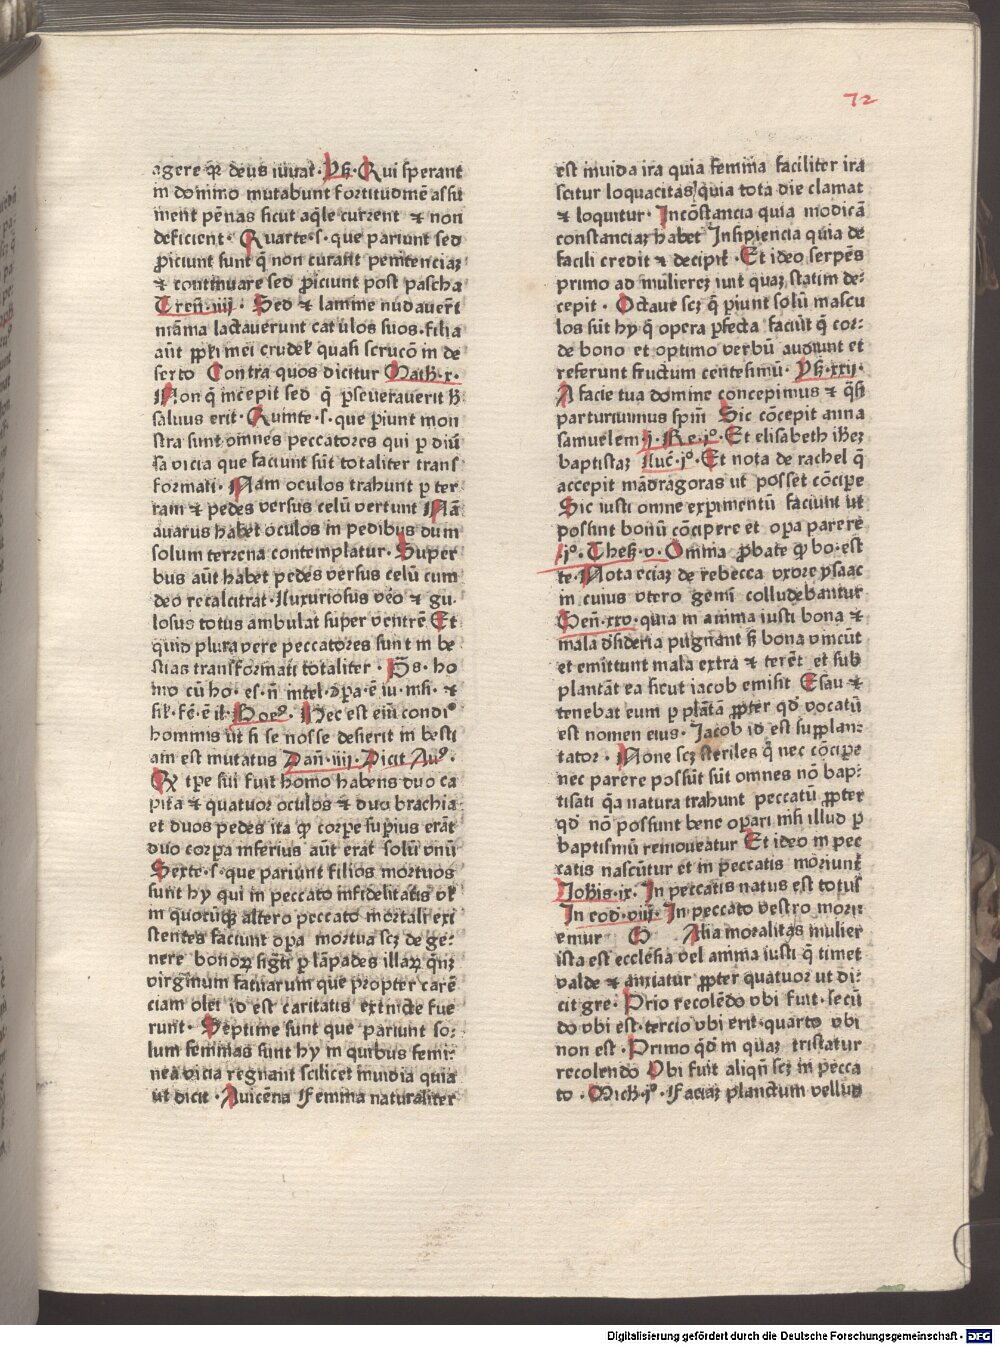 72
agere qꝛ deus iuuat · Yß · Qui sperant
in domino mutabunt fortitudinē assu
ment pēnas sicut aq̄le current ⁊ non
deficient · Quarte · s · que pariunt sed
ꝓiciunt sunt q̄ non curant penitenciaꝫ
⁊ continuare sed ꝓiciunt post pascha
Tren̄ · iiij · Sed ⁊ lamine nudauer̄t
māma lactauerunt catulos suos · filia
aūt ppl̄i mei crudel̄ quasi strucō in de
serto Contra quos dicitur Math̄ · x ·
Non q̄ incepit sed q̄ ꝑseuerauerit h̄
saluus erit · Quinte · s · que ꝑiunt mon
stra sunt omnes peccatores qui ꝑ diū
sa vicia que faciunt sūt totaliter trans
formati · Nam oculos trahunt ꝑ ter
ram ⁊ pedes versus celū vertunt Nā
auarus habet oculos in pedibus dum
solum terrena contemplatur · Super
bus aūt habet pedes versus celū cum
deo recalcitrat · Luxuriosus v̄o ⁊ gu ·
losus totus ambulat super ventrē Et
quid plura vere peccatores sunt in be
stias transformati totaliter · P̄s · ho
mo cū ho · es · n̄ intel · ꝯpa · ē iu · insi · ⁊
sil · fē · ē il Boeꝰ · Hec est eiū condi°
hominis ut si se nosse desierit in besti
am est mutatus Dan̄ · iiij · Dicit Auꝰ ·
Qꝛ tꝑe sui fuit homo habens duo ca
pita ⁊ quatuor oculos ⁊ duo brachia
et duos pedes ita ꝙ corꝑe suꝑius erāt
duo corꝑa inferius aūt erat solū vnū
Sexte · s · que pariunt filios mortuos
sunt hy qui in peccato infidelitatis vl̄
in quocūqꝫ altero peccato mortali exi
stentes faciunt oꝑa mortua scꝫ de ge-
nere bonoꝝ sigti ꝑ lāpades illaꝝ q̄nꝫ
virginum fatuarum que propter carē
ciam olei id est caritatis extincte fue
runt · Septime sunt que pariunt so-
lum feminas sunt hy in quibus femi-
nea vicia regnant scilicet inuidia quia
ut dicit · Auicēna Femina naturaliter
est inuida ira quia femina faciliter ira
scitur loquacitas quia tota die clamat
⁊ loquitur · Incōstancia quia modicā
constanciaꝫ habet Insipiencia quia de
facili credit ⁊ decipit · Et ideo serpēs
primo ad mulierez iuit quaꝫ statim de-
cepit · Octaue scꝫ q̄ ꝑiunt solū mascu
los sūt hy q̄ opera ꝑfecta faciūt q̄ cor-
de bono et optimo verbū audiunt et
referunt fructum centesimū · Yß · xxij ·
A facie tua domine concepimus ⁊ q̄si
parturiuimus spm̄ Sic cōcepit anna
samuelem j · Re · j° · Et elisabeth ihez
baptistaꝫ Luc̄ · j° · Et nota de rachel q̄
accepit mādragoras ut posset cōcipe
Sic iusti omne exꝑimentū faciunt ut
possint bonū cōcipere et oꝑa parere
j° · Theß · v · Omnia ꝓbate ꝙ bo · est
te · Nota eciaꝫ de rebecca vxore ysaac
in cuius vtero gemi colludebantur
Gen̄ · xxv · quia in anima iusti bona ⁊
mala d̄sideria pugnant ß bona vincūt
et emittunt mala extra ⁊ terēt et sub
plantāt ea sicut iacob emisit Esau ⁊
tenebat eum ꝑ plātā ꝓpter qd̄ vocatū
est nomen eius · Jacob id est supplan-
tator · None scꝫ steriles q̄ nec cōcipe
nec parere possūt sūt omnes nō bap-
tisati q̄a natura trahunt peccatū ꝓpter
qd̄ nō possunt bene oꝑari nisi illud ꝑ
baptismū remoueatur Et ideo in pec
catis nascūtur et in peccatis moriunt̄
Joh̄is · ix · In peccatis natus est totus
In eod · viij · In peccato vestro mori
emur G Alia moralitas mulier
ista est ecclesia vel anima iusti q̄ timet
valde ⁊ anxiatur ꝓpter quatuor ut di-
cit gre · Prio recolēdo vbi fuit · secū
do vbi est · tercio vbi erit · quarto vbi
non est · Primo qd̄ in quaꝫ tristatur
recolendo Vbi fuit aliqn̄ scꝫ in pecca
to · Mich̄ · j° · Faciaꝫ planctum vellud
Digitalisierung gefördert durch die Deutsche Forschungsgemeinschaft - DFG